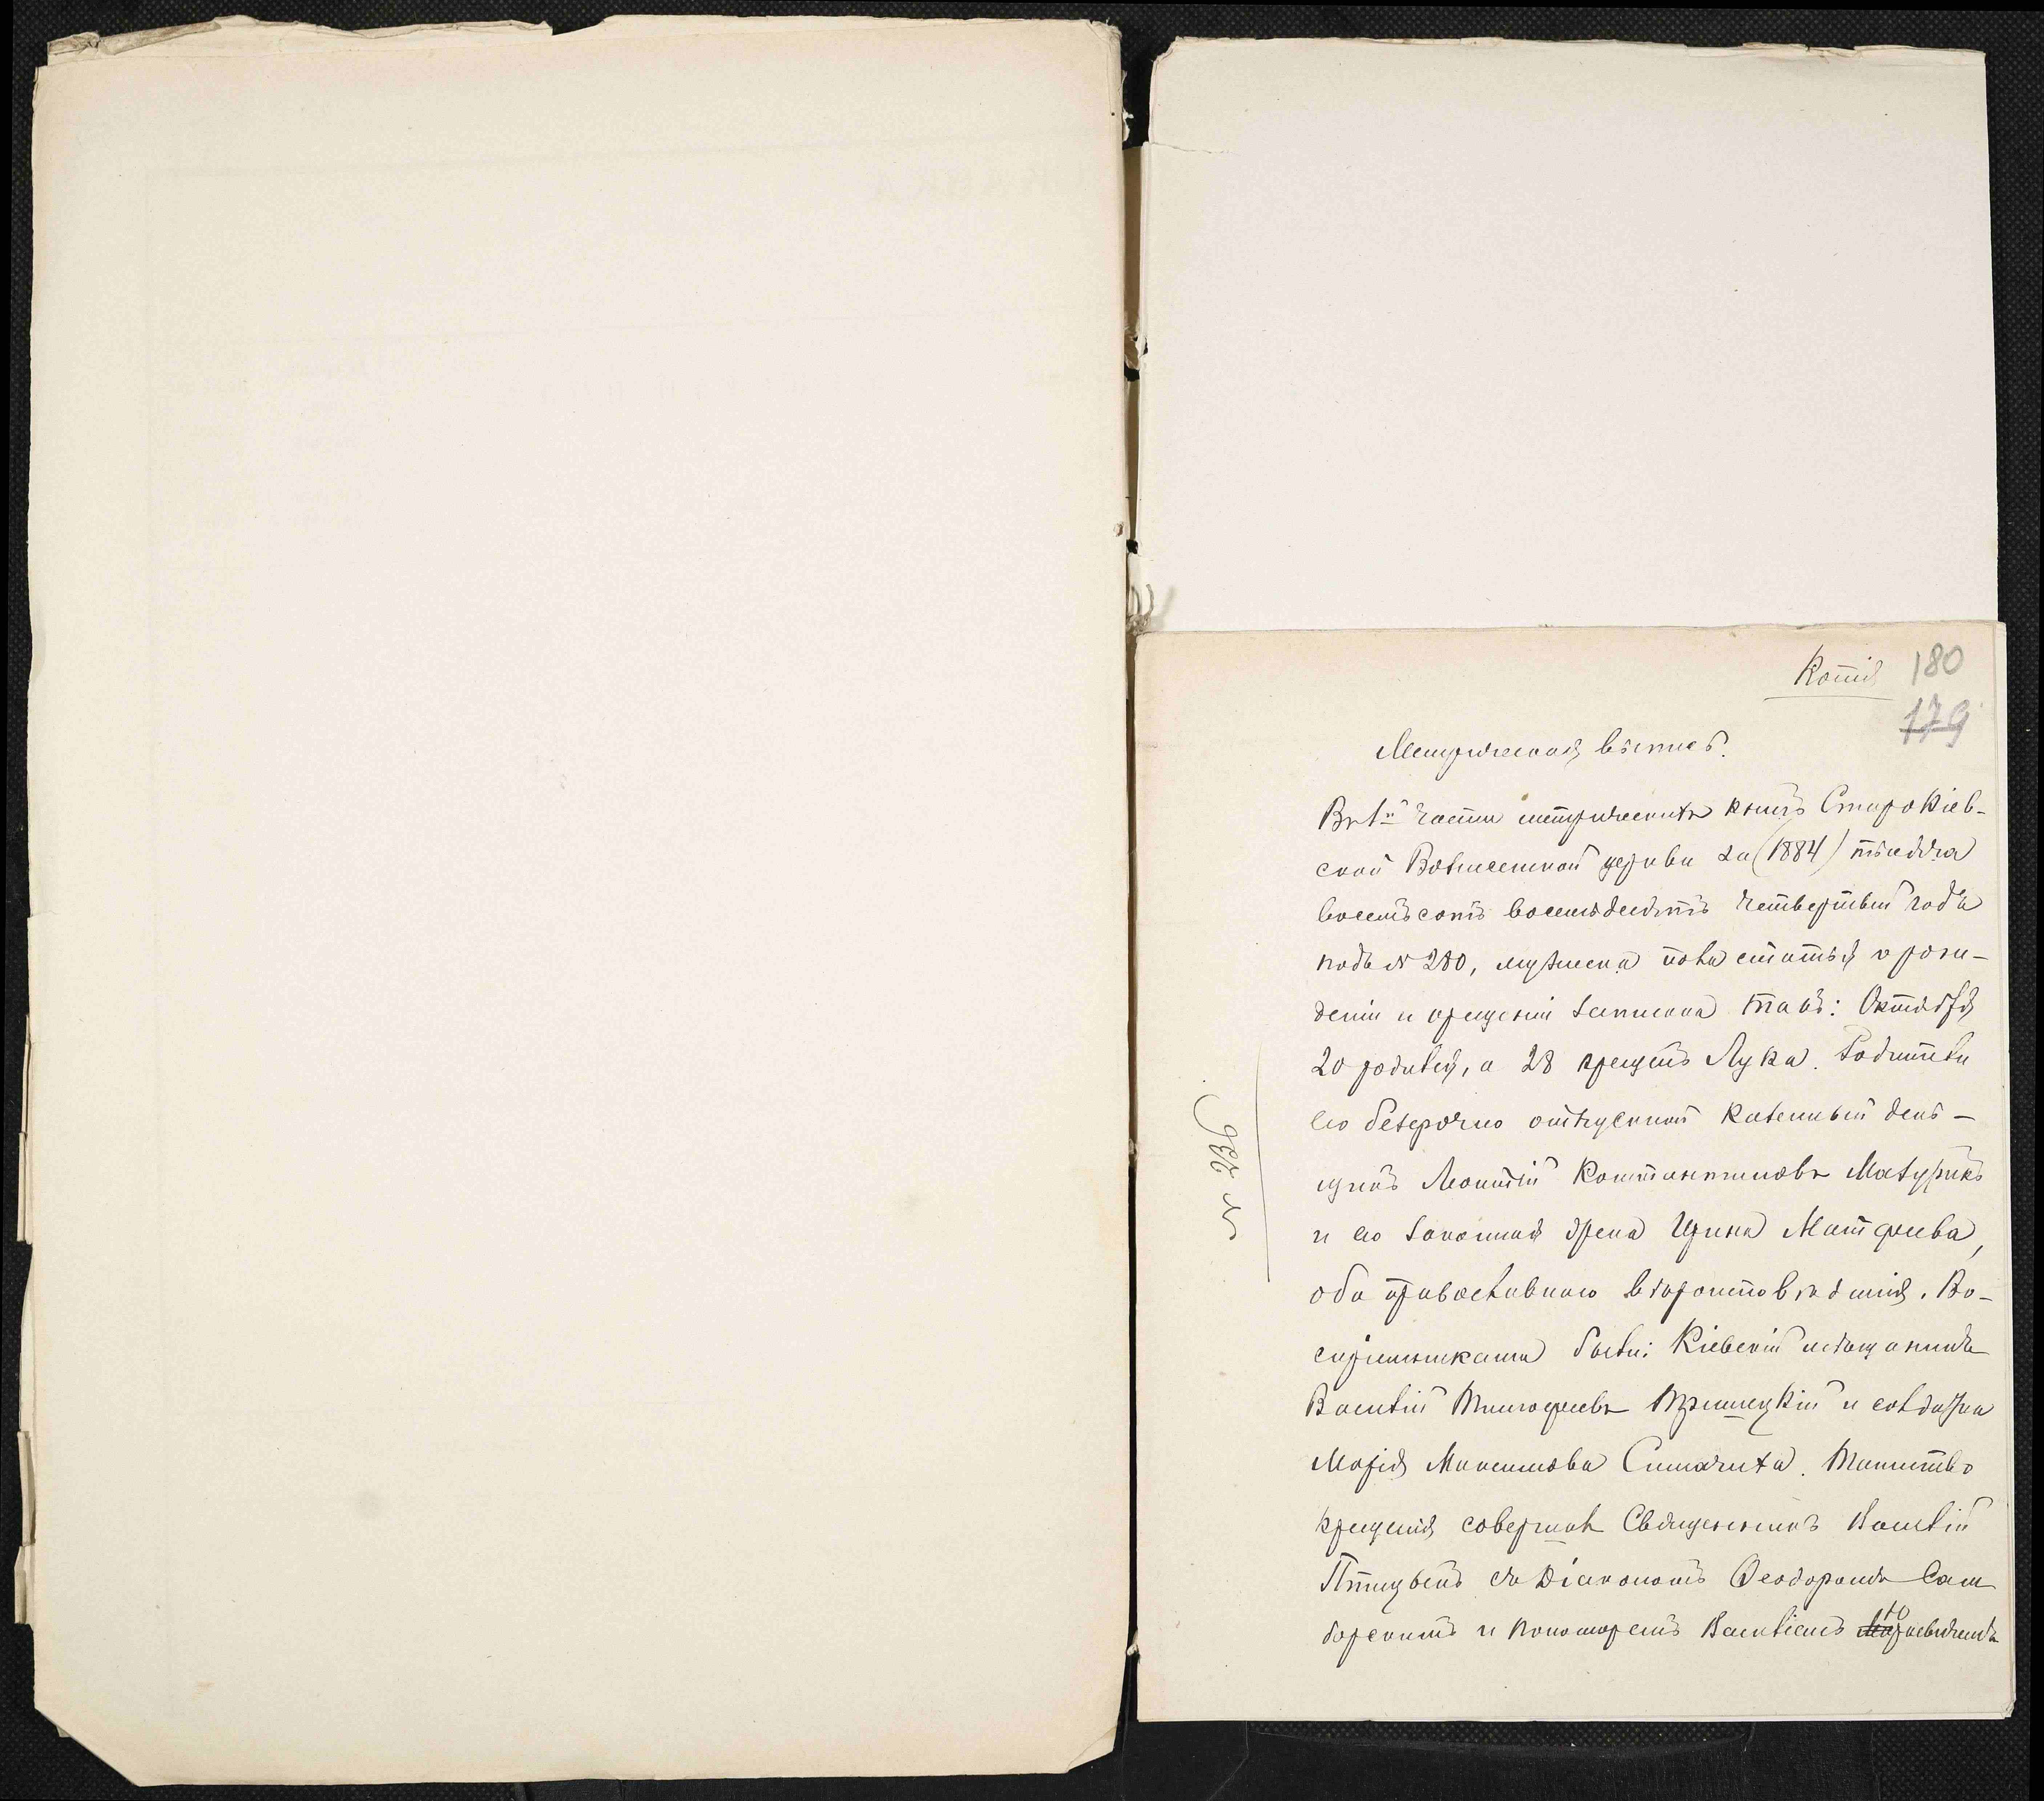 Копія 180
179
Метрическая выпись.
Въ 1й части метрическихъ книгъ Старокіев-
ской Вознесенской церкви за (1884) тысяча
восемьсотъ восемьдесятъ четвертый годъ
подъ № 280, мужеска пола статья о рож-
деніи и крещеніи записана такъ: Октября
20 родился, а 28 крещенъ Лука. Родители
его безсрочно отпускной казенный день-
щикъ Леонтій Константиновъ Мазурикъ
и его законная жена Ирина Матфиева,
оба православнаго вѣроисповѣданія. Во-
спріемниками были: Кіевскій мѣщанинъ
Василій Тимофиевъ и солдатка
Марія Максимова. Таинство
крещенія совершалъ Священникъ Василій
съ Діакономъ Ѳеодоромъ Сам-
борскимъ и пономаремъ Василіемъ
№ 236